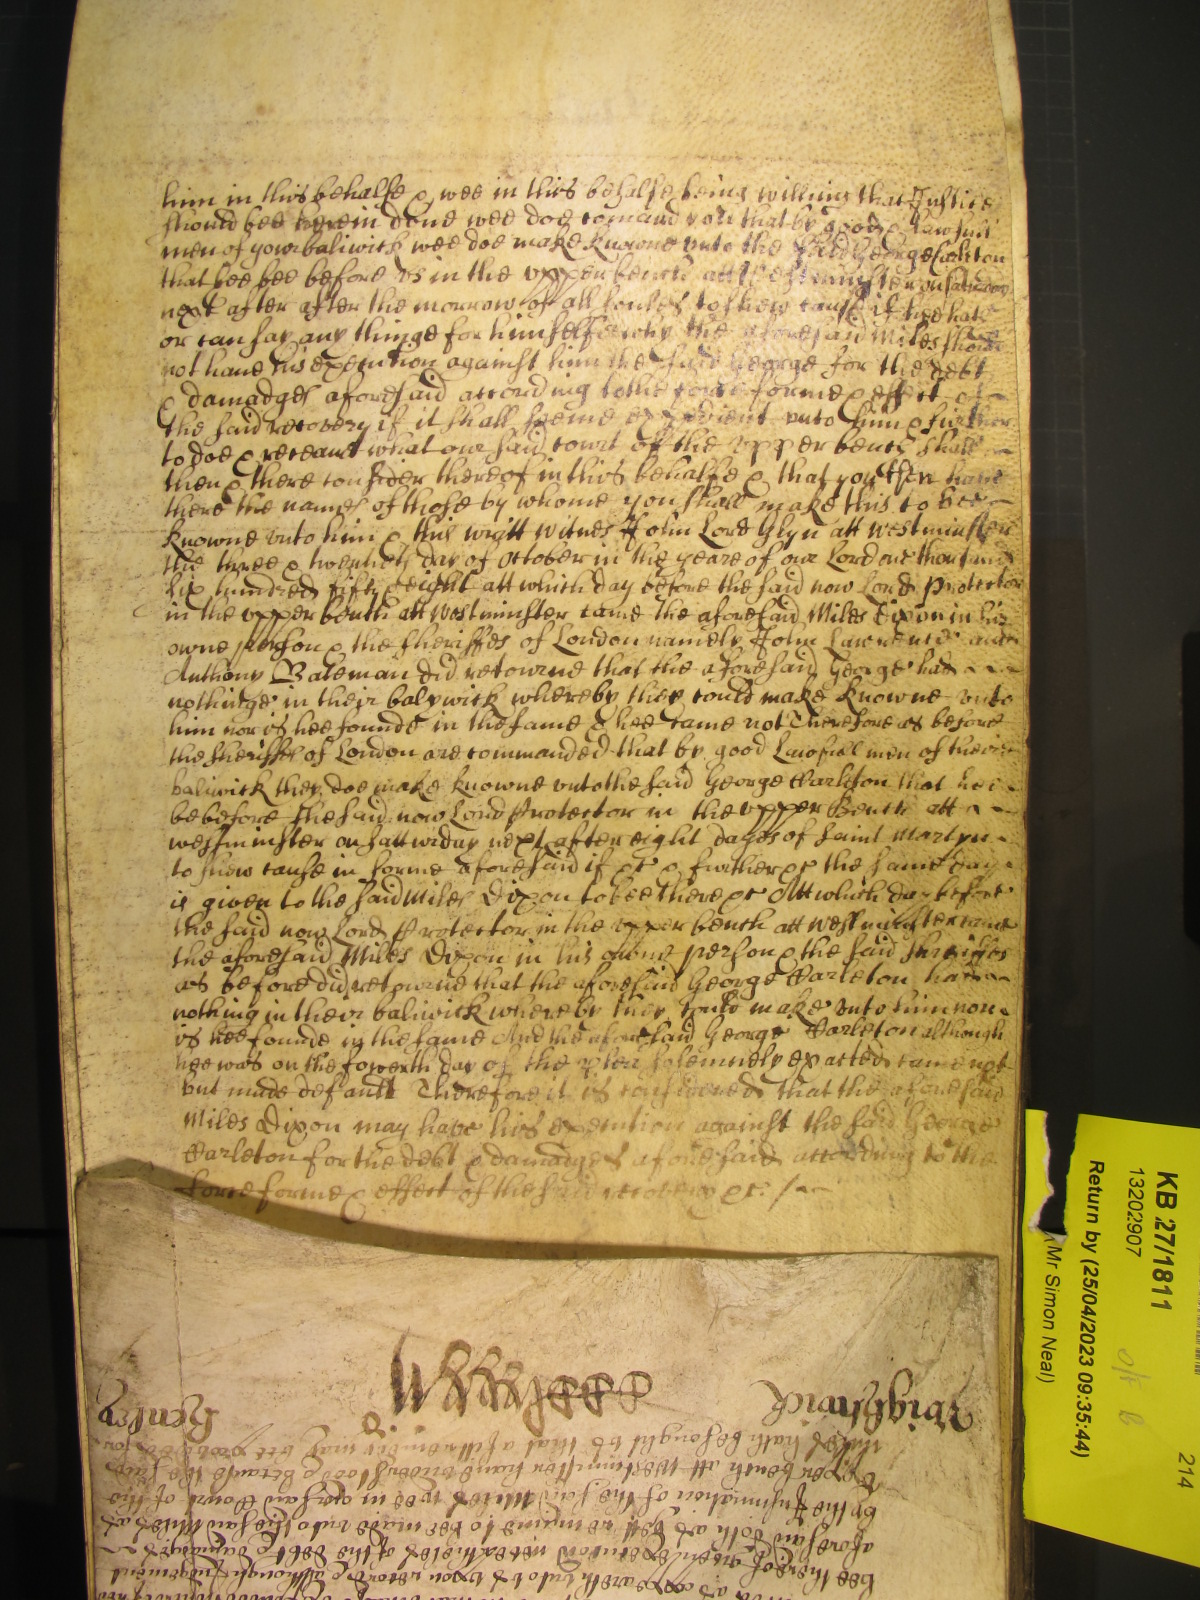 him in this behalfe & wee in this behalfe being willing that Justice
should bee therein done wee doe comand you that by good & lawfull
men of your baliwick wee doe make knowne unto the said George Carleton
that hee bee before us in the upper bench att Westminster on saturday
next after after the morrow of all soules to shew cause if hee hath
or can say any thinge for himselfe why the aforesaid Miles should
not have his execution against him the said George for the debt
& damadges aforesaid according to the force forme & effect of
the said recovery if it shall seeme expedient unto him & further
to doe & receave what our said court of the upper bench shall
then & there consider thereof in this behalfe & that you then have
there the names of those by whome you shall make this to bee
knowne unto him & this writt Witnes John Lord Glyn att Westminster
the three & twentieth day of October in the yeare of our Lord one thousand
six hundred fifty & eight att which day before the said now Lord Protector
in the upper bench att Westminster came the aforesaid Miles Dixon in his
owne person & the sheriffes of London namely John Lawrence and
Anthony Bateman did retourne that the aforesaid George had
nothinge in their balywick whereby they could make knowne unto
him nor is hee founde in the same & hee came not Therefore as before
the sheriffes of London are commanded that by good Lawfull men of their
baliwick they doe make knowne unto the said George Carleton that hee
be before the said now Lord Protector in the upper Bench att
Westminster on satturday next after eight dayes of Saint Martyn
to shew cause in forme aforesaid if &c & further &c the same day
is given to the said Miles Dixon to bee there &c Att which day before
the said now Lord Protector in the upper bench att Westminster came
the aforesaid Miles Dixon in his owne person & the said sheriffes
as before did retourne that the aforesaid George Carleton had
nothing in their baliwick whereby they could make unto him nor
is hee founde in the same And the aforesaid George Carleton although
hee was on the fowerth day of the plea solemnely exacted came not
but made default Therefore it is considered that the aforesaid
Miles Dixon may have his execution against the said George
Carleton for the debt & damadges aforesaid according to the
force forme & effect of the said recovery &c
Wigg Henley
miles hath besought us that a due remedie may bee provided for
Upper bench att Westminster have understood & because the said
by the Insinuation of the said Miles wee in our said Court of the
aforesaid doth as yett remaine to bee made unto the said Miles as
bee thereof given execution nevertheles of the debt & damages
KB 27/1811
13202907
Return by (25/04/2023 09:35:44)
Mr Simon Neal)
214